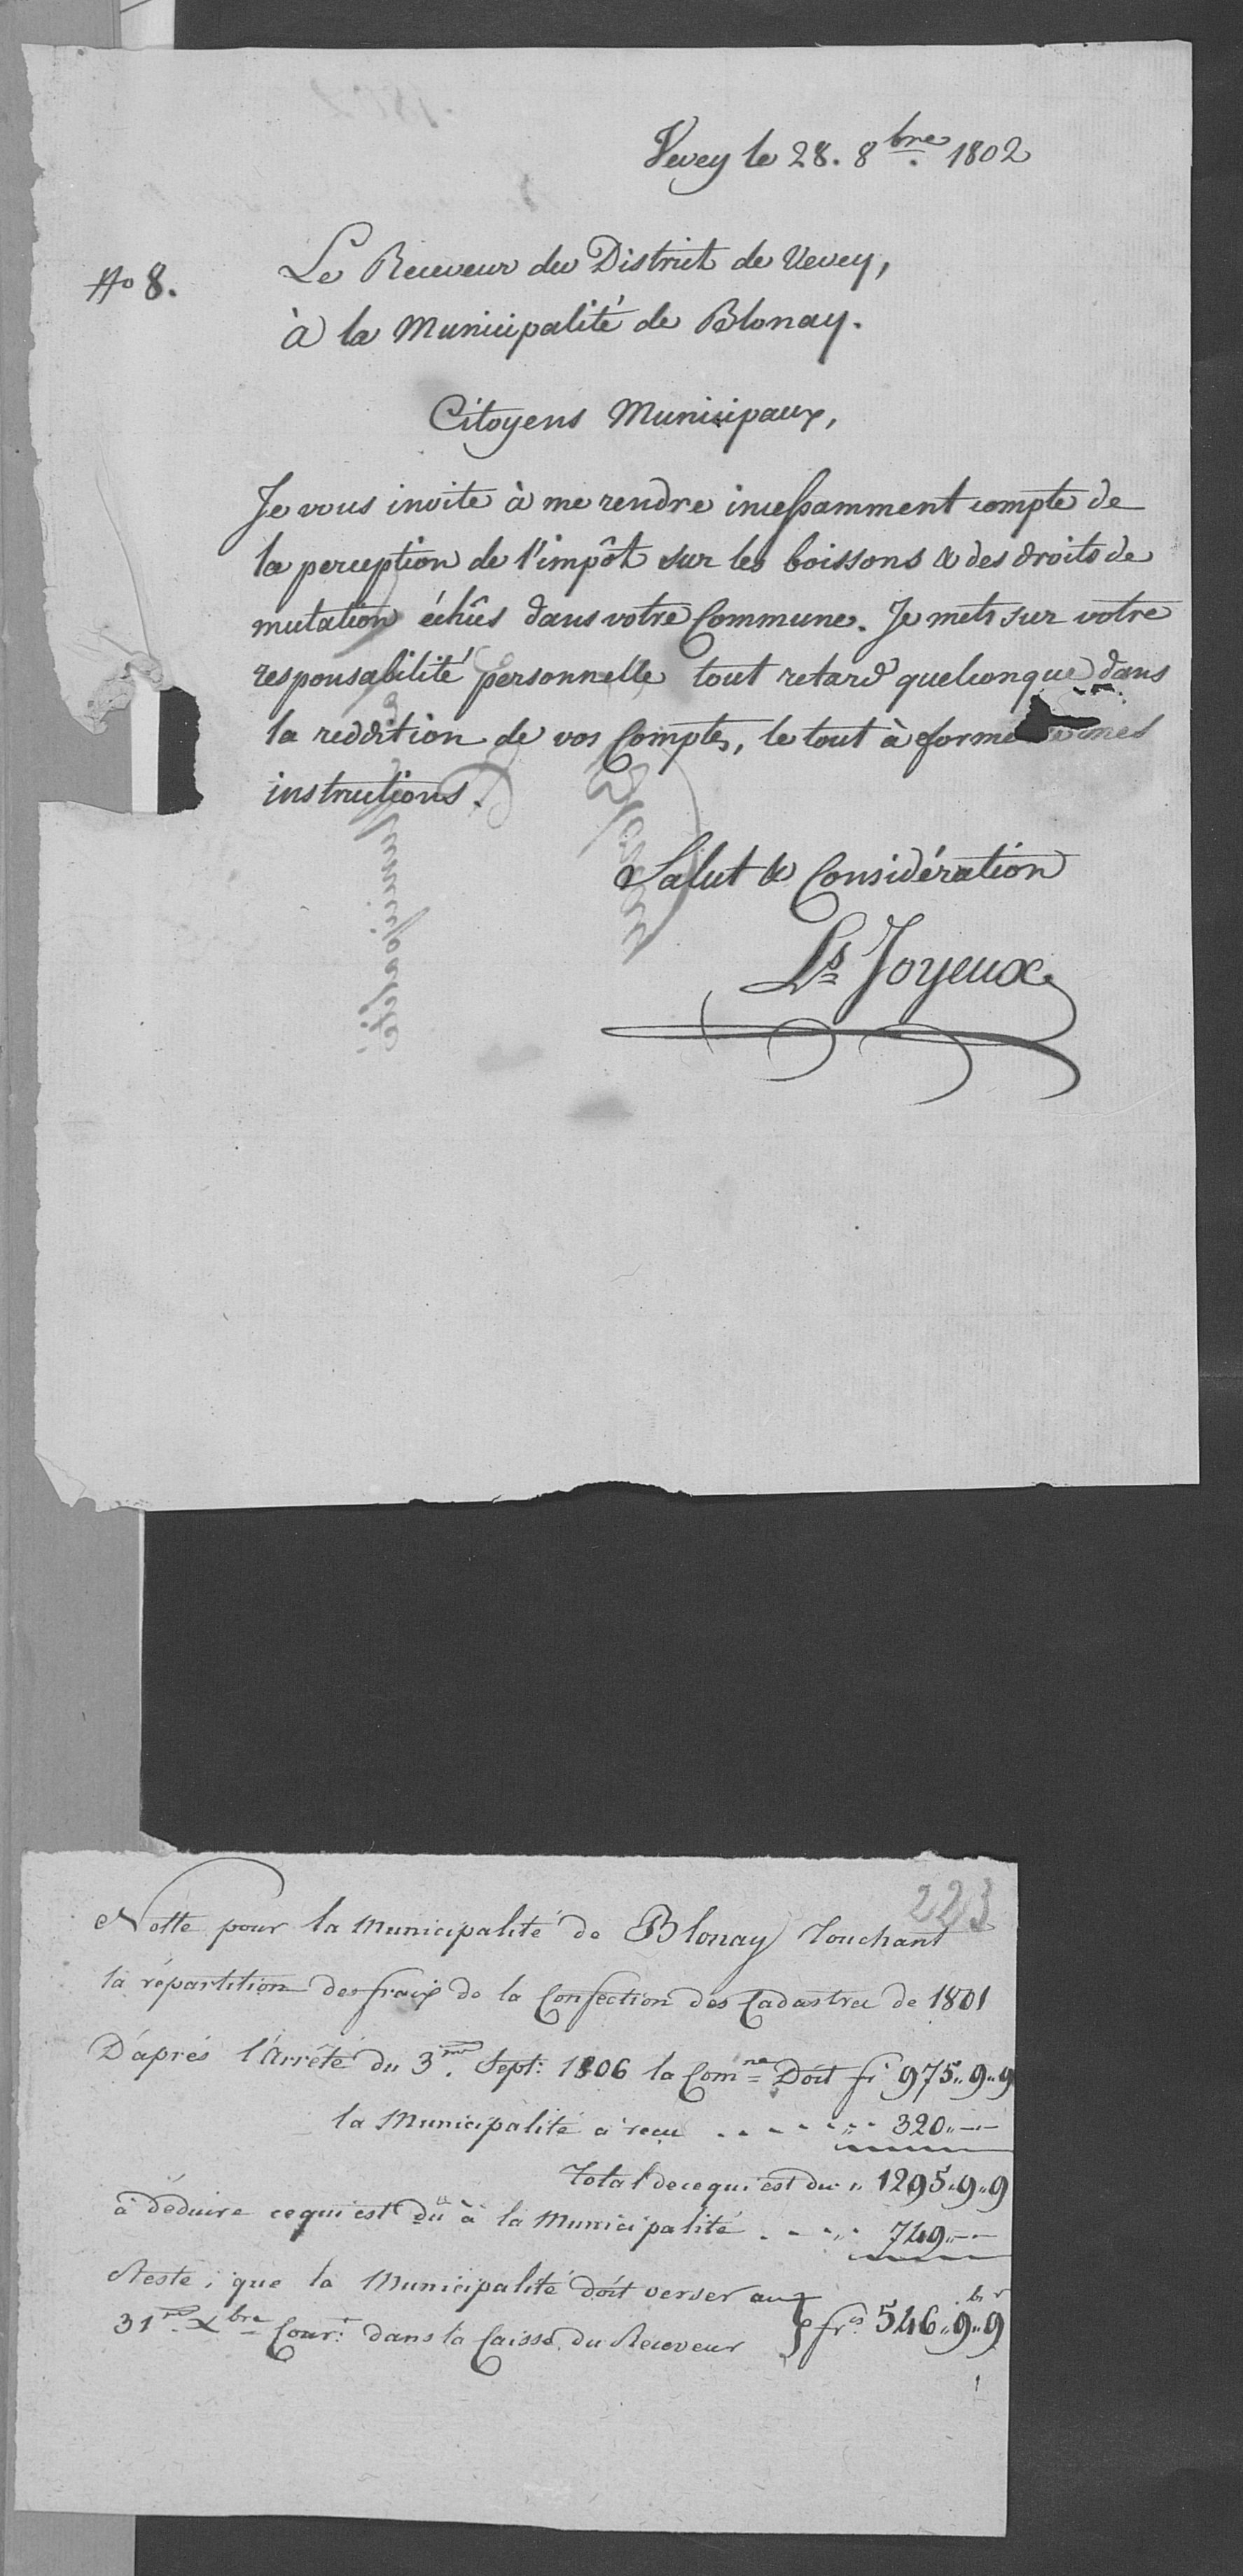 Vevey le 28. 8bre. 1802
No 8.
Le Receveur du District de Vevey,
à la Municipalité de Blonay.
Citoyens Municipaux,
Je vous invite à me rendre incessamment compte de
la perception de l'impôt sur les boissons & des droits de
mutation échûs dans votre Commune. Je mets sur votre
responsabilité personnelle tout retard quelconque dans
la reddition de vos Comptes, le tout à forme mes
instructions.
Salut & Considération
Ls Joyeux
223
Notte pour la Municipalité de Blonay Touchant
la répartition des fraix de la Confection des Cadastres de 1801
D'après l'Arrêté du 3me. Sept: 1806 la Comne Doit fr 975,,9,,9
la Municipalité a reçu - - - - - ,, - 320,,—
Total de ce qui est du ,, 1295,,9,,9
à déduire ce qui est dû à la Municipalité - - ,, - 749,,—
Reste, que la Municipalité doit verser au
31me. Xbre Cour: dans la Caisse du Receveur } frs 546,,9,,9